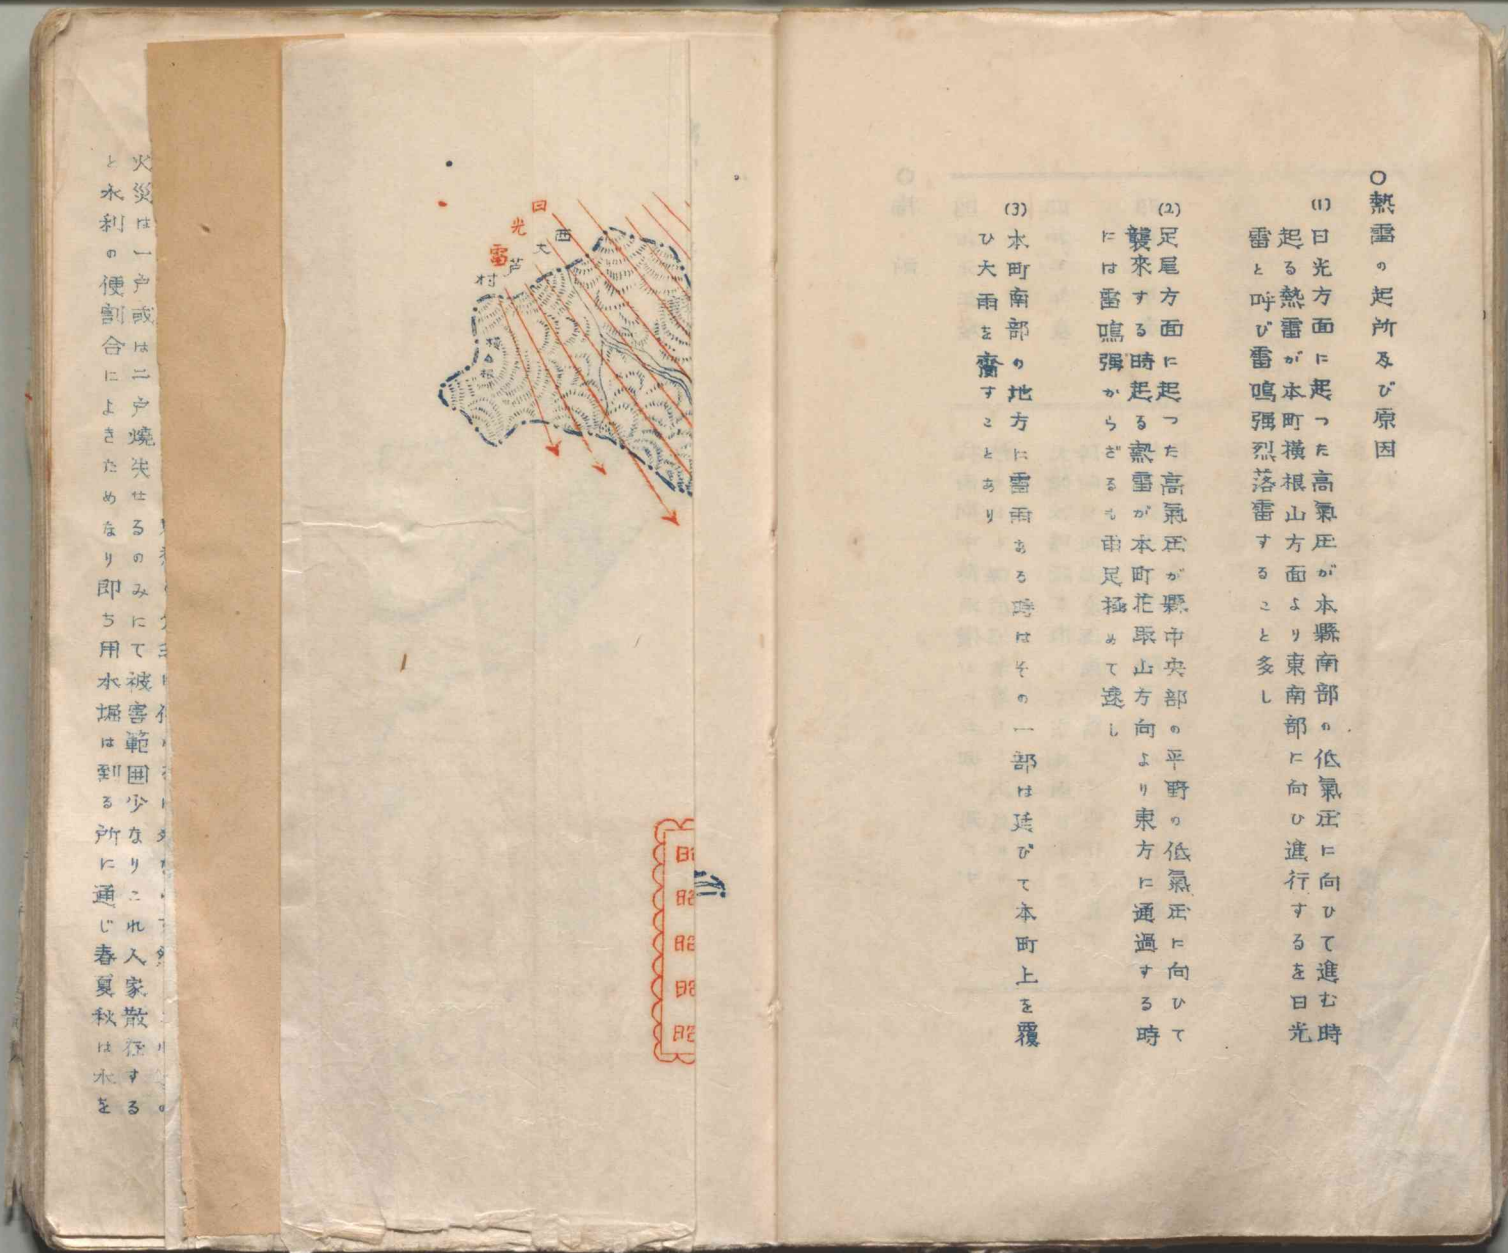 ○熱雷の起所及び原因
(1)日光方面に起つた高氣圧が本縣南部の低氣圧に向ひて進む時
起る熱雷が本町横根山方面より東南部に向ひ進行するを日光
雷と呼び雷鳴强烈落雷すること多し
(2)足尾方面に起つた高氣圧が縣中央部の平野の低氣圧に向ひて
襲來する時起る熱雷が本町花取山方向より東方に通過する時
には雷鳴强からざるも雨足極めて速し
(3)本町南部の地方に雷雨ある時はその一部は延びて本町上を覆
ひ大雨を齎すことあり
西大芦村
日光雷
横根
昭
昭
昭
昭
昭
火災は一戸或は二戸燒失せるのみにて被害範囲少なりこれ人家散在する
と水利の便割合によきためなり即ち用水堀は到る所に通じ春夏秋は水を